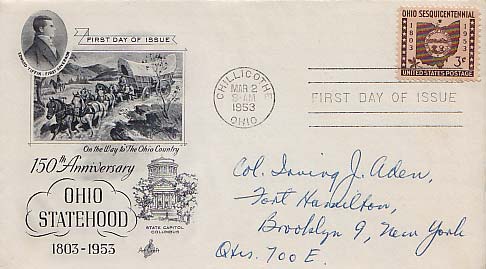 FIRST DAY OF ISSUE
EDWARD TIFFIN · FIRST GOVERNOR
On the Way to The Ohio Country
150th Anniversary
OHIO
STATEHOOD
1803-1953
STATE CAPITOL
COLUMBUS
ArtCraft
CHILLICOTHE
MAR 2
9-AM
1953
OHIO
FIRST DAY OF ISSUE
OHIO SESQUICENTENNIAL
1803
1953
3¢
UNITED STATES POSTAGE
Col. Irving J. Aden,
Fort Hamilton,
Brooklyn 9, New York
Qtrs. 700 E.